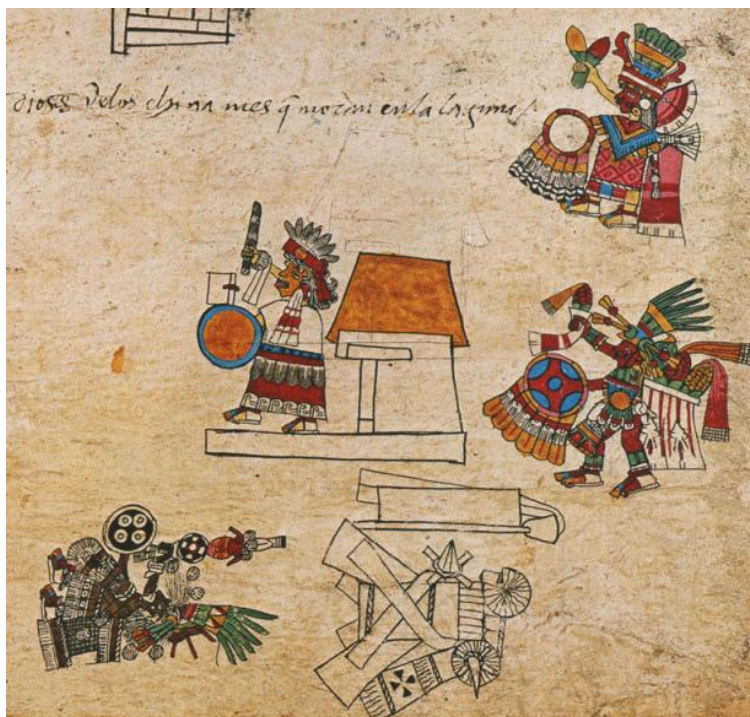 dioses delos chinames q̄ moran enla laguna